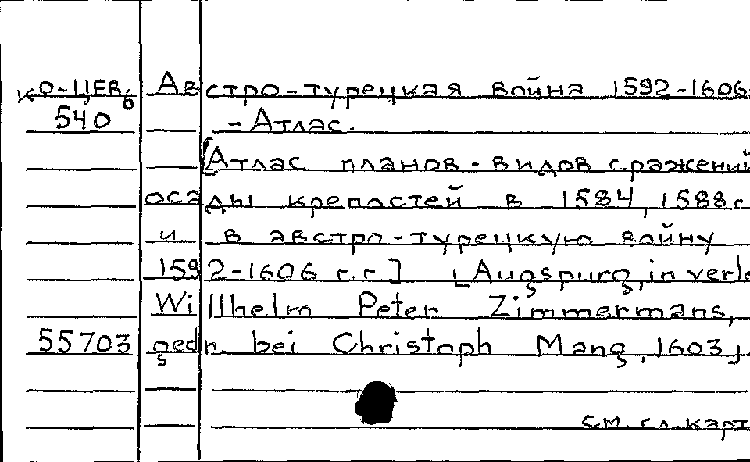 КО-ЦЕВ/б Австро-турецкая война 1592-1606
540 - Атлас.
[Атлас планов-видов сражений
осады крепостей в 1584, 1588 г
и в австро-турецкую войну
1592-1606 г.г.] [Augspurg, in verle
Willhelm Peter Zimmermans,
55703 gedr. bei Christoph Mang, 1603].
см. гл. карт